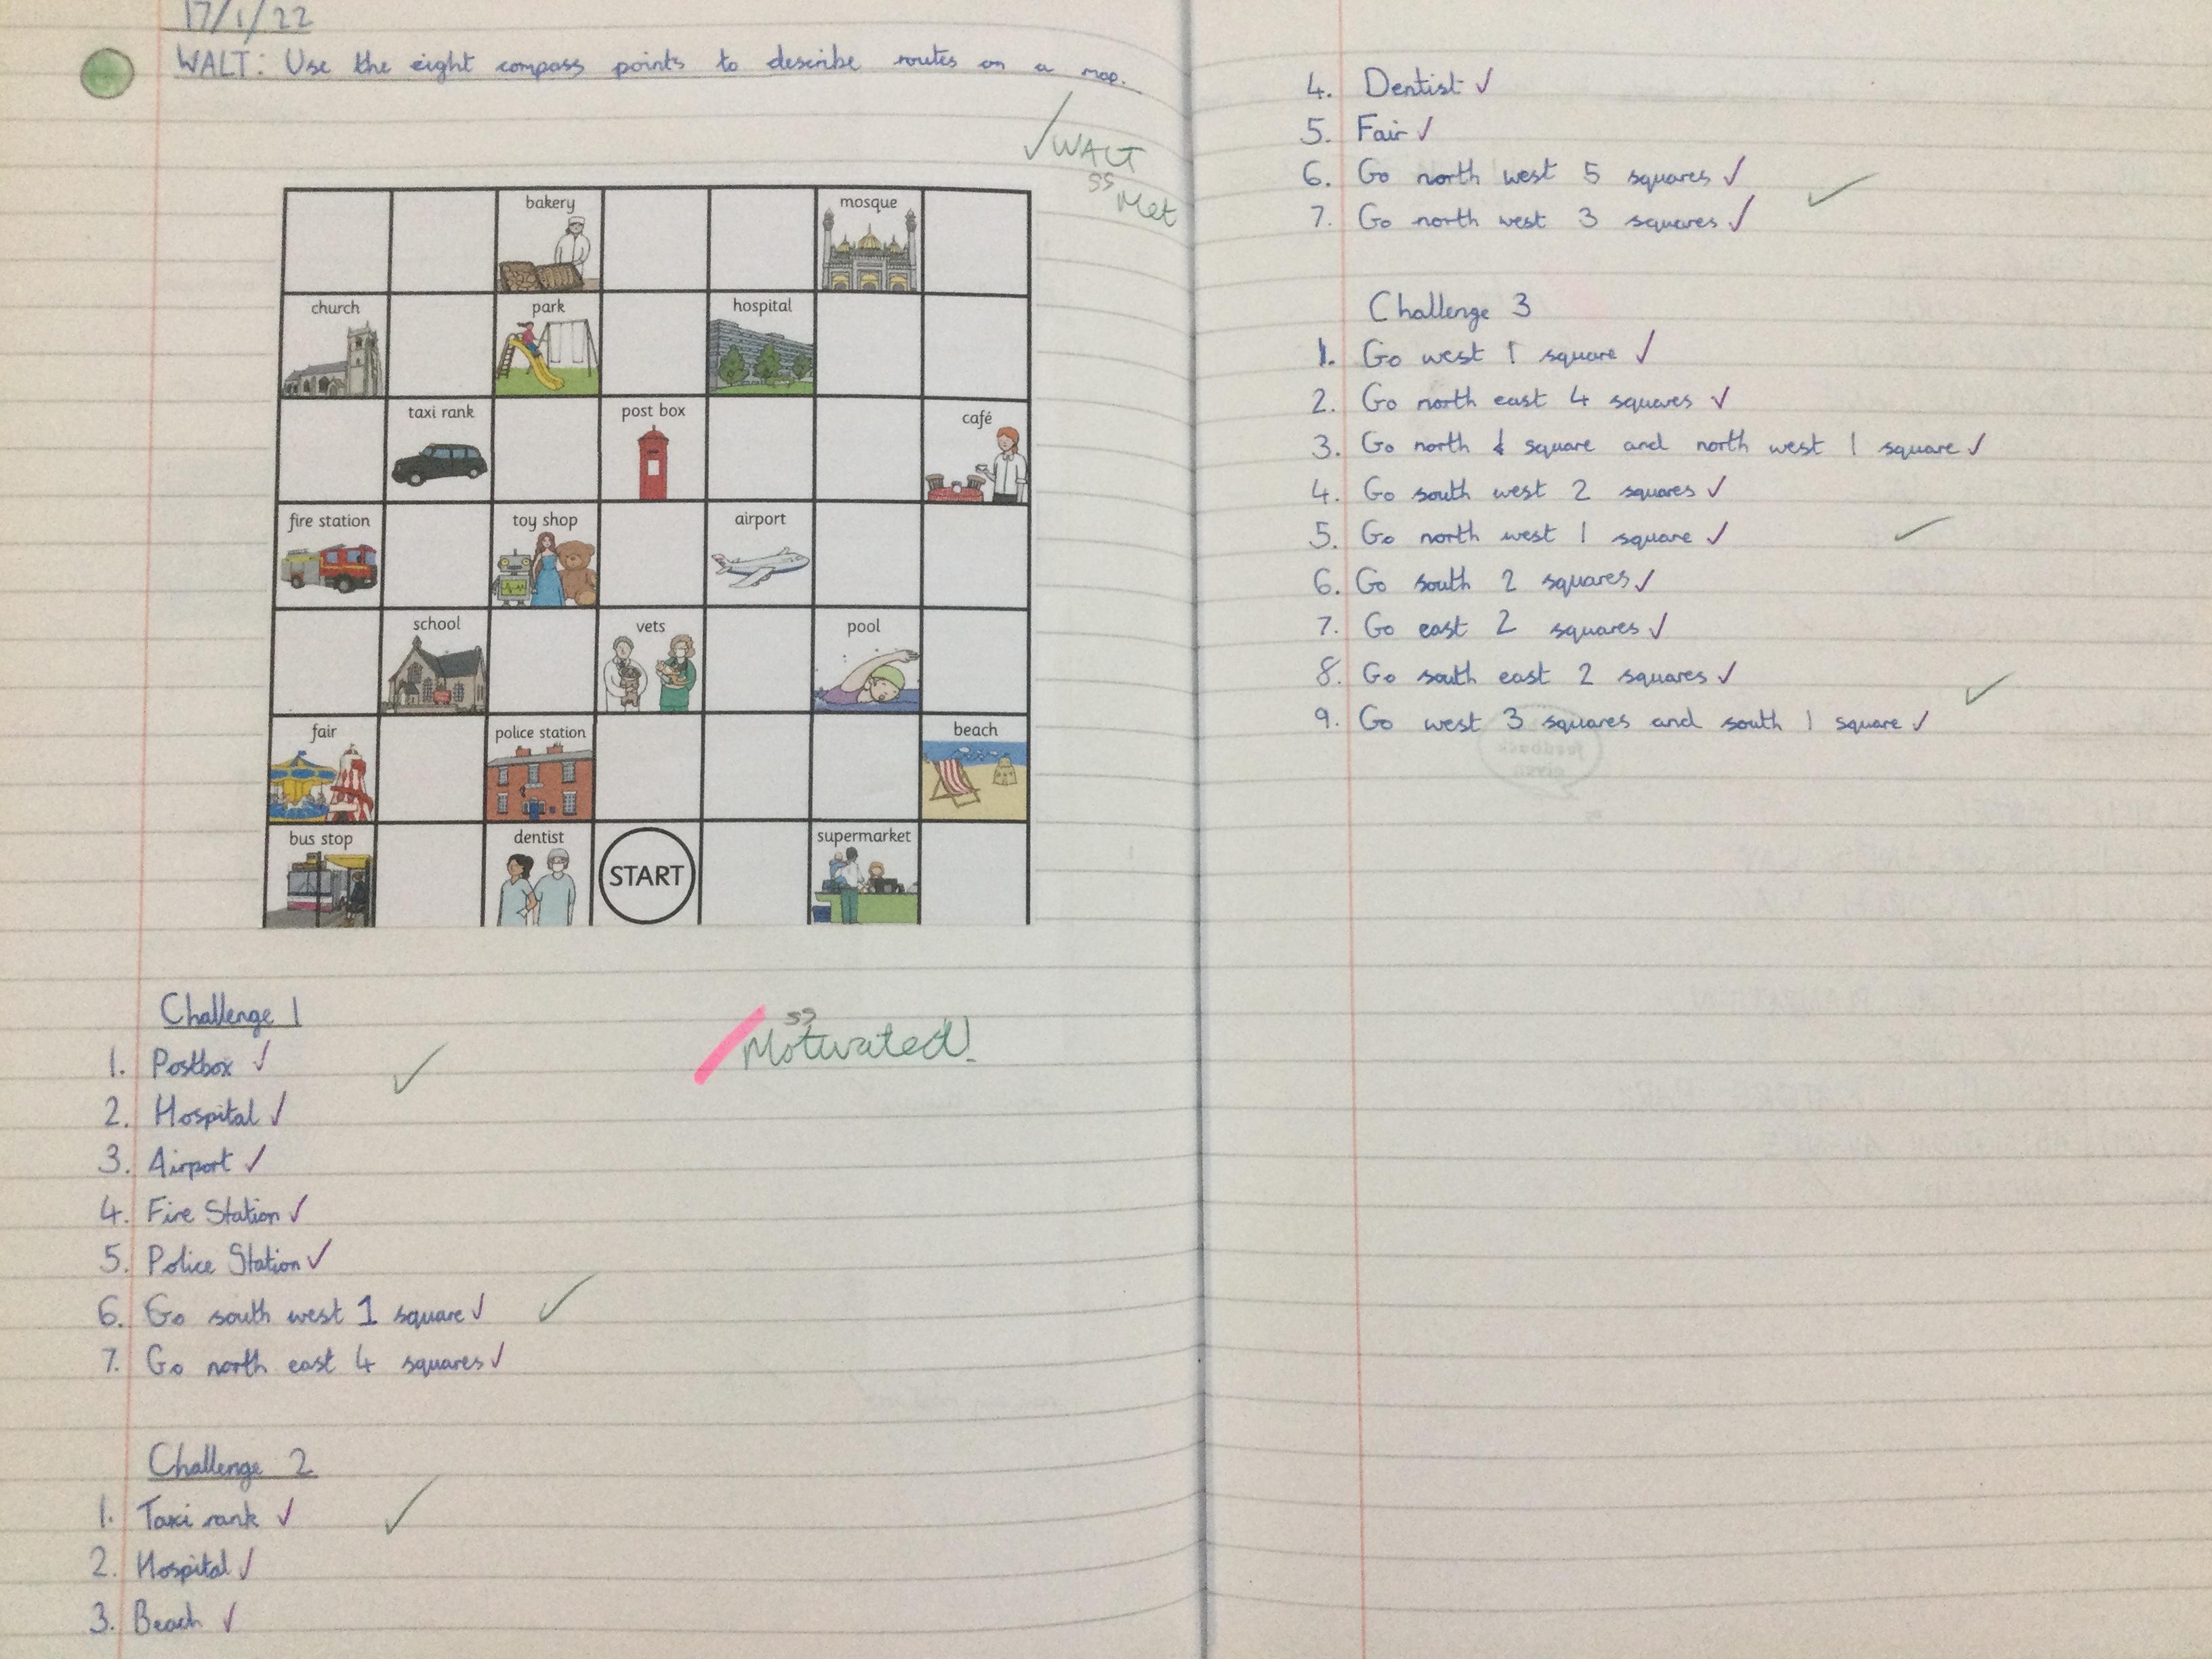 17/1/22
WALT: Use the eight compass points to describe routes on a map.
✓ WALT
ss
Met
bakery
mosque
church
park
hospital
taxi rank
post box
café
fire station
toy shop
airport
school
vets
pool
fair
police station
beach
bus stop
dentist
START
supermarket
Challenge 1
1. Postbox ✓
2. Hospital ✓
3. Airport ✓
4. Fire Station ✓
5. Police Station ✓
6. Go south west 1 square ✓
7. Go north east 4 squares ✓
ss
Motivated!
Challenge 2
1. Taxi rank ✓
2. Hospital ✓
3. Beach ✓
4. Dentist ✓
5. Fair ✓
6. Go north west 5 squares ✓
7. Go north west 3 squares ✓
Challenge 3
1. Go west 1 square ✓
2. Go north east 4 squares ✓
3. Go north square and north west 1 square ✓
4. Go south west 2 squares ✓
5. Go north west 1 square ✓
6. Go south 2 squares ✓
7. Go east 2 squares ✓
8. Go south east 2 squares ✓
9. Go west 3 squares and south 1 square ✓